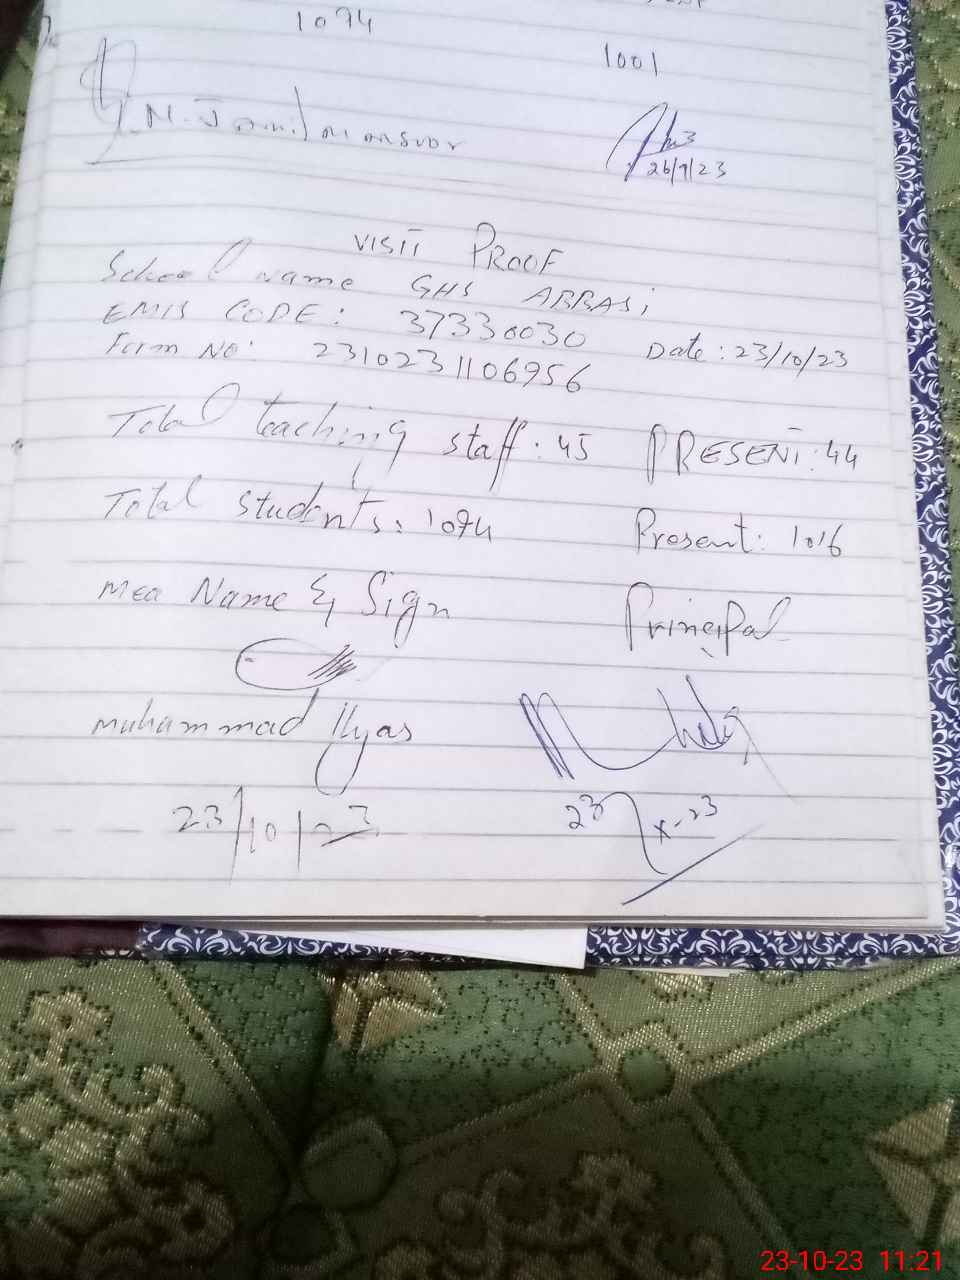 1094
1001
M. Jamil Mansoor
26/9/23
VISIT PROOF
School Name GHS ABBASi
EMIS CODE: 37330030
Form No: 2310231106956 Date: 23/10/23
Total teaching staff: 45 PRESENT: 44
Total students: 1094 Present: 1016
Mea Name & Sign Principal
Muhammad Ilyas
23/10/23 23/x-23
23-10-23 11:21